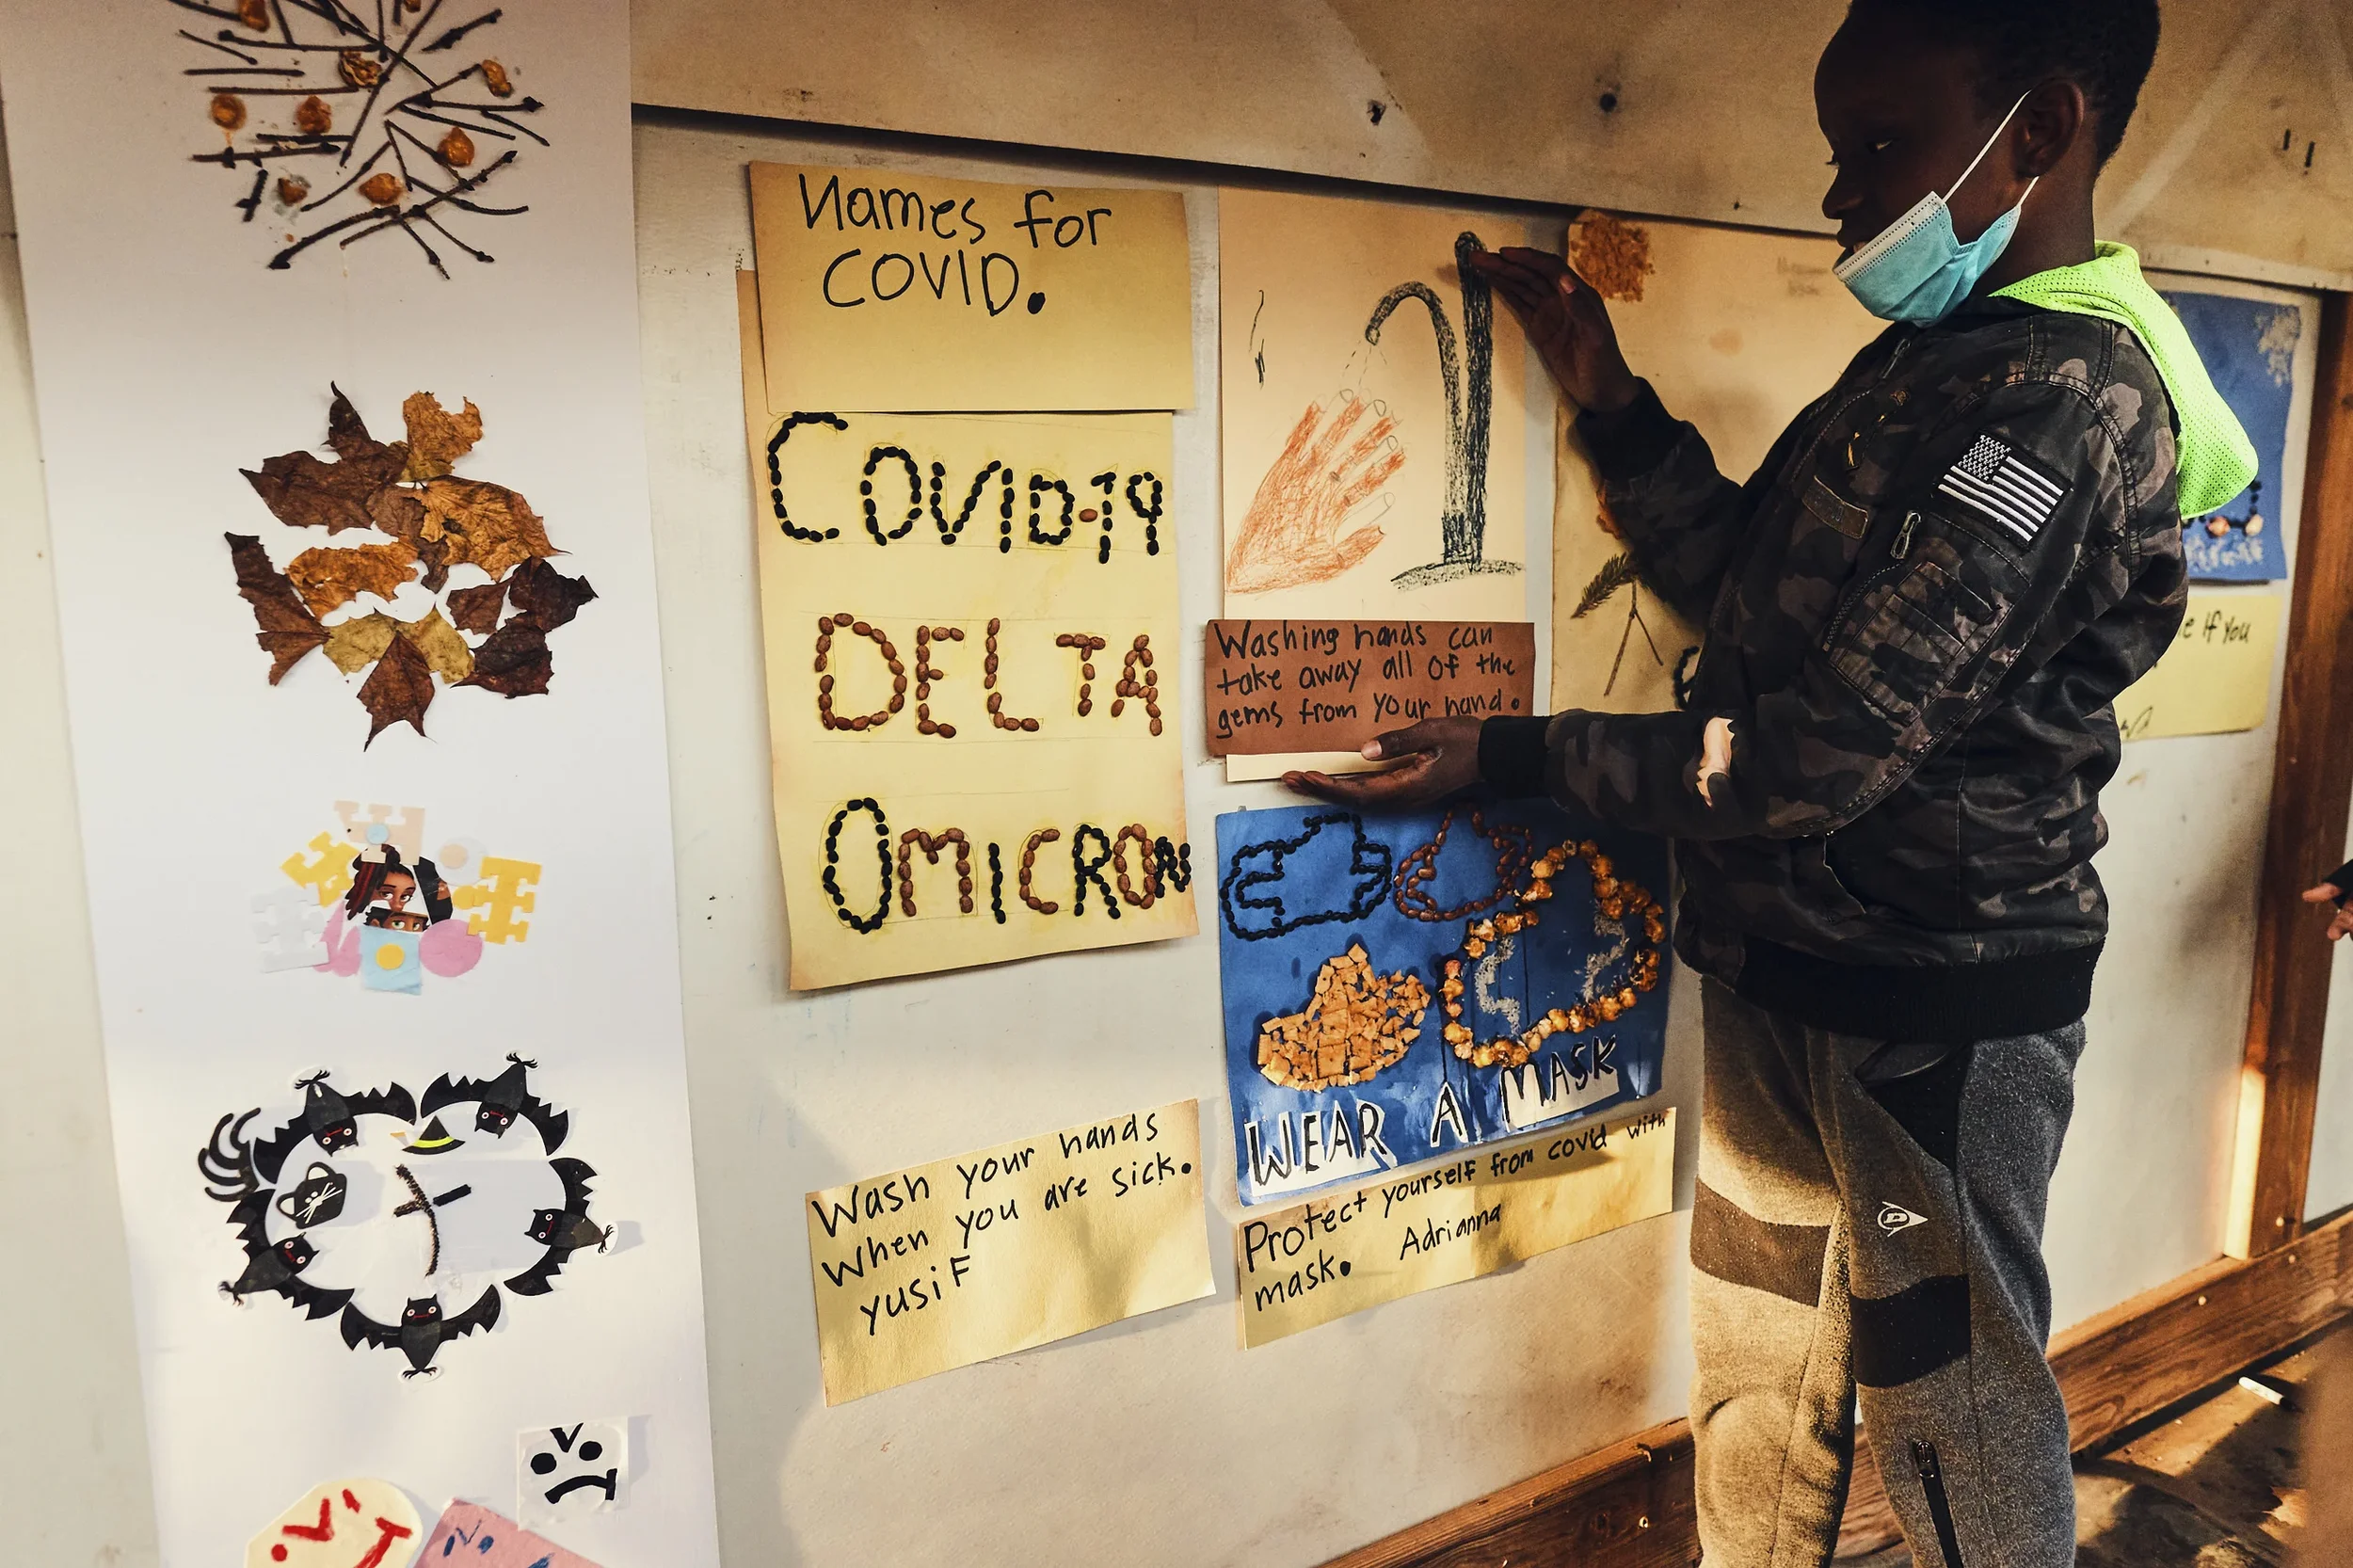 Names for
COVID.
COVID-19
DELTA
OMICRON
Washing hands can
take away all of the
gems from your hand.
WEAR A MASK
Wash your hands
when you are sick.
yusif
Protect yourself from covid with
mask. Adrianna
e If you
D